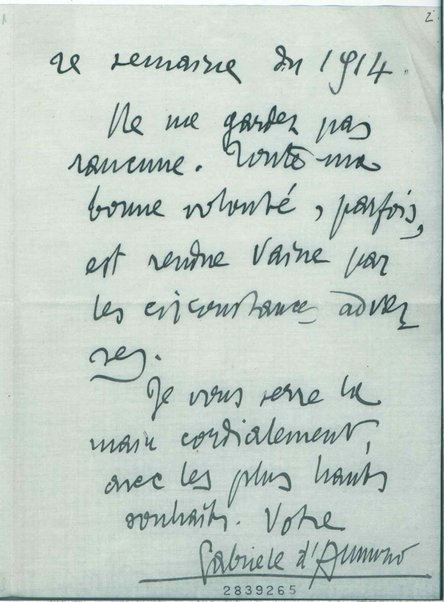 2
2e semaine du 1914.
Ne me gardez pas
rancune. Toute ma
bonne volonté, parfois,
est rendue vaine par
les circonstances adver
ses.
Je vous serre la
main cordialement,
avec les plus hauts
souhaits. Votre
Gabriele d'Annunzio
2839265